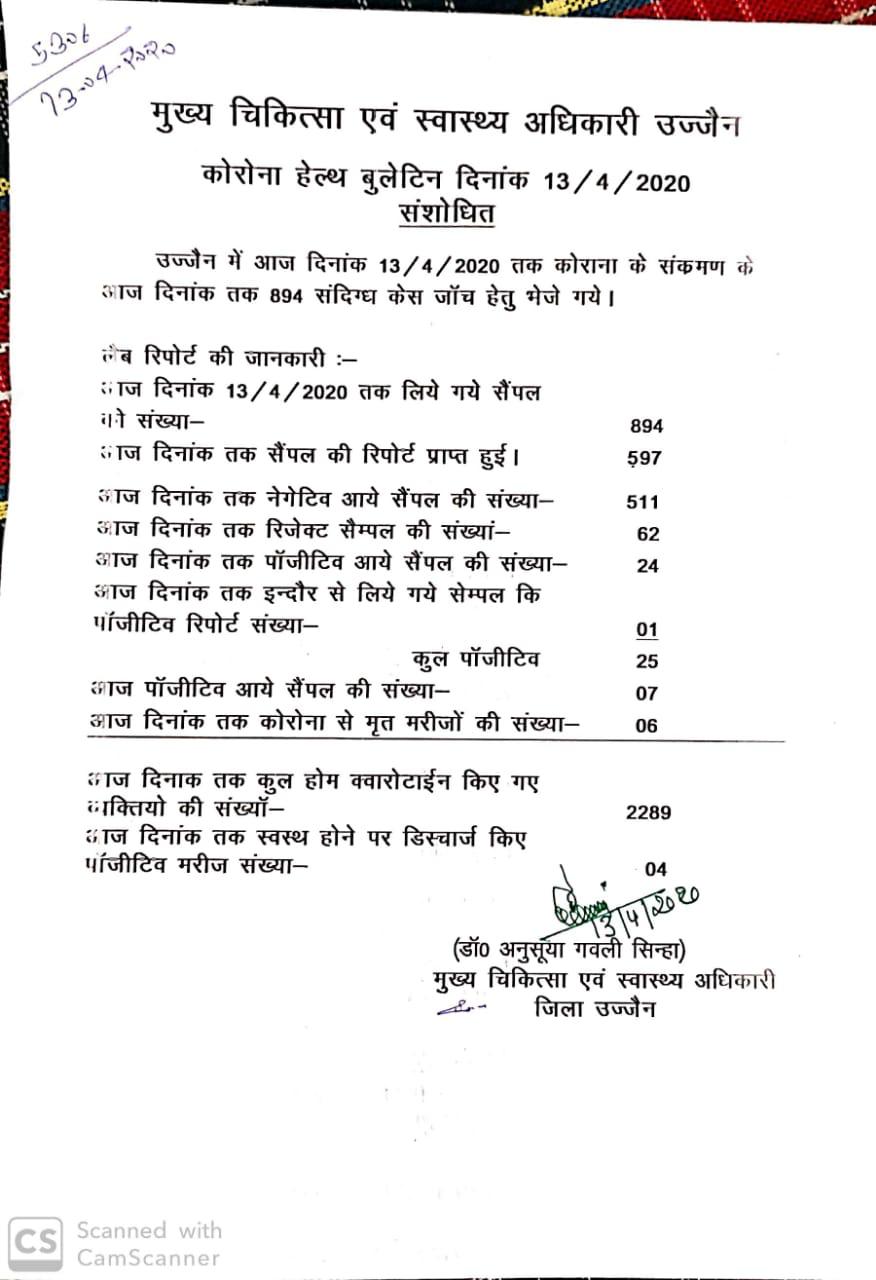 5306
13-04-2020
मुख्य चिकित्सा एवं स्वास्थ्य अधिकारी उज्जैन
कोरोना हेल्थ बुलेटिन दिनांक 13/4/2020
संशोधित
उज्जैन में आज दिनांक 13/4/2020 तक कोराना के संकमण के
आज दिनांक तक 894 संदिग्ध केस जॉच हेतु भेजे गये।
लैब रिपोर्ट की जानकारी :–
आज दिनांक 13/4/2020 तक लिये गये सैंपल
की संख्या– 894
आज दिनांक तक सैंपल की रिपोर्ट प्राप्त हुई। 597
आज दिनांक तक नेगेटिव आये सैंपल की संख्या– 511
आज दिनांक तक रिजेक्ट सैम्पल की संख्यां– 62
आज दिनांक तक पॉजीटिव आये सैंपल की संख्या– 24
आज दिनांक तक इन्दौर से लिये गये सेम्पल कि
पॉजीटिव रिपोर्ट संख्या– 01
कुल पॉजीटिव 25
आज पॉजीटिव आये सैंपल की संख्या– 07
आज दिनांक तक कोरोना से मृत मरीजों की संख्या– 06
आज दिनाक तक कुल होम क्वारोटाईन किए गए
व्यक्तियो की संख्यॉ– 2289
आज दिनांक तक स्वस्थ होने पर डिस्चार्ज किए
पॉजीटिव मरीज संख्या– 04
13/4/2020
(डॉ0 अनुसूया गवली सिन्हा)
मुख्य चिकित्सा एवं स्वास्थ्य अधिकारी
जिला उज्जैन
CS Scanned with
CamScanner